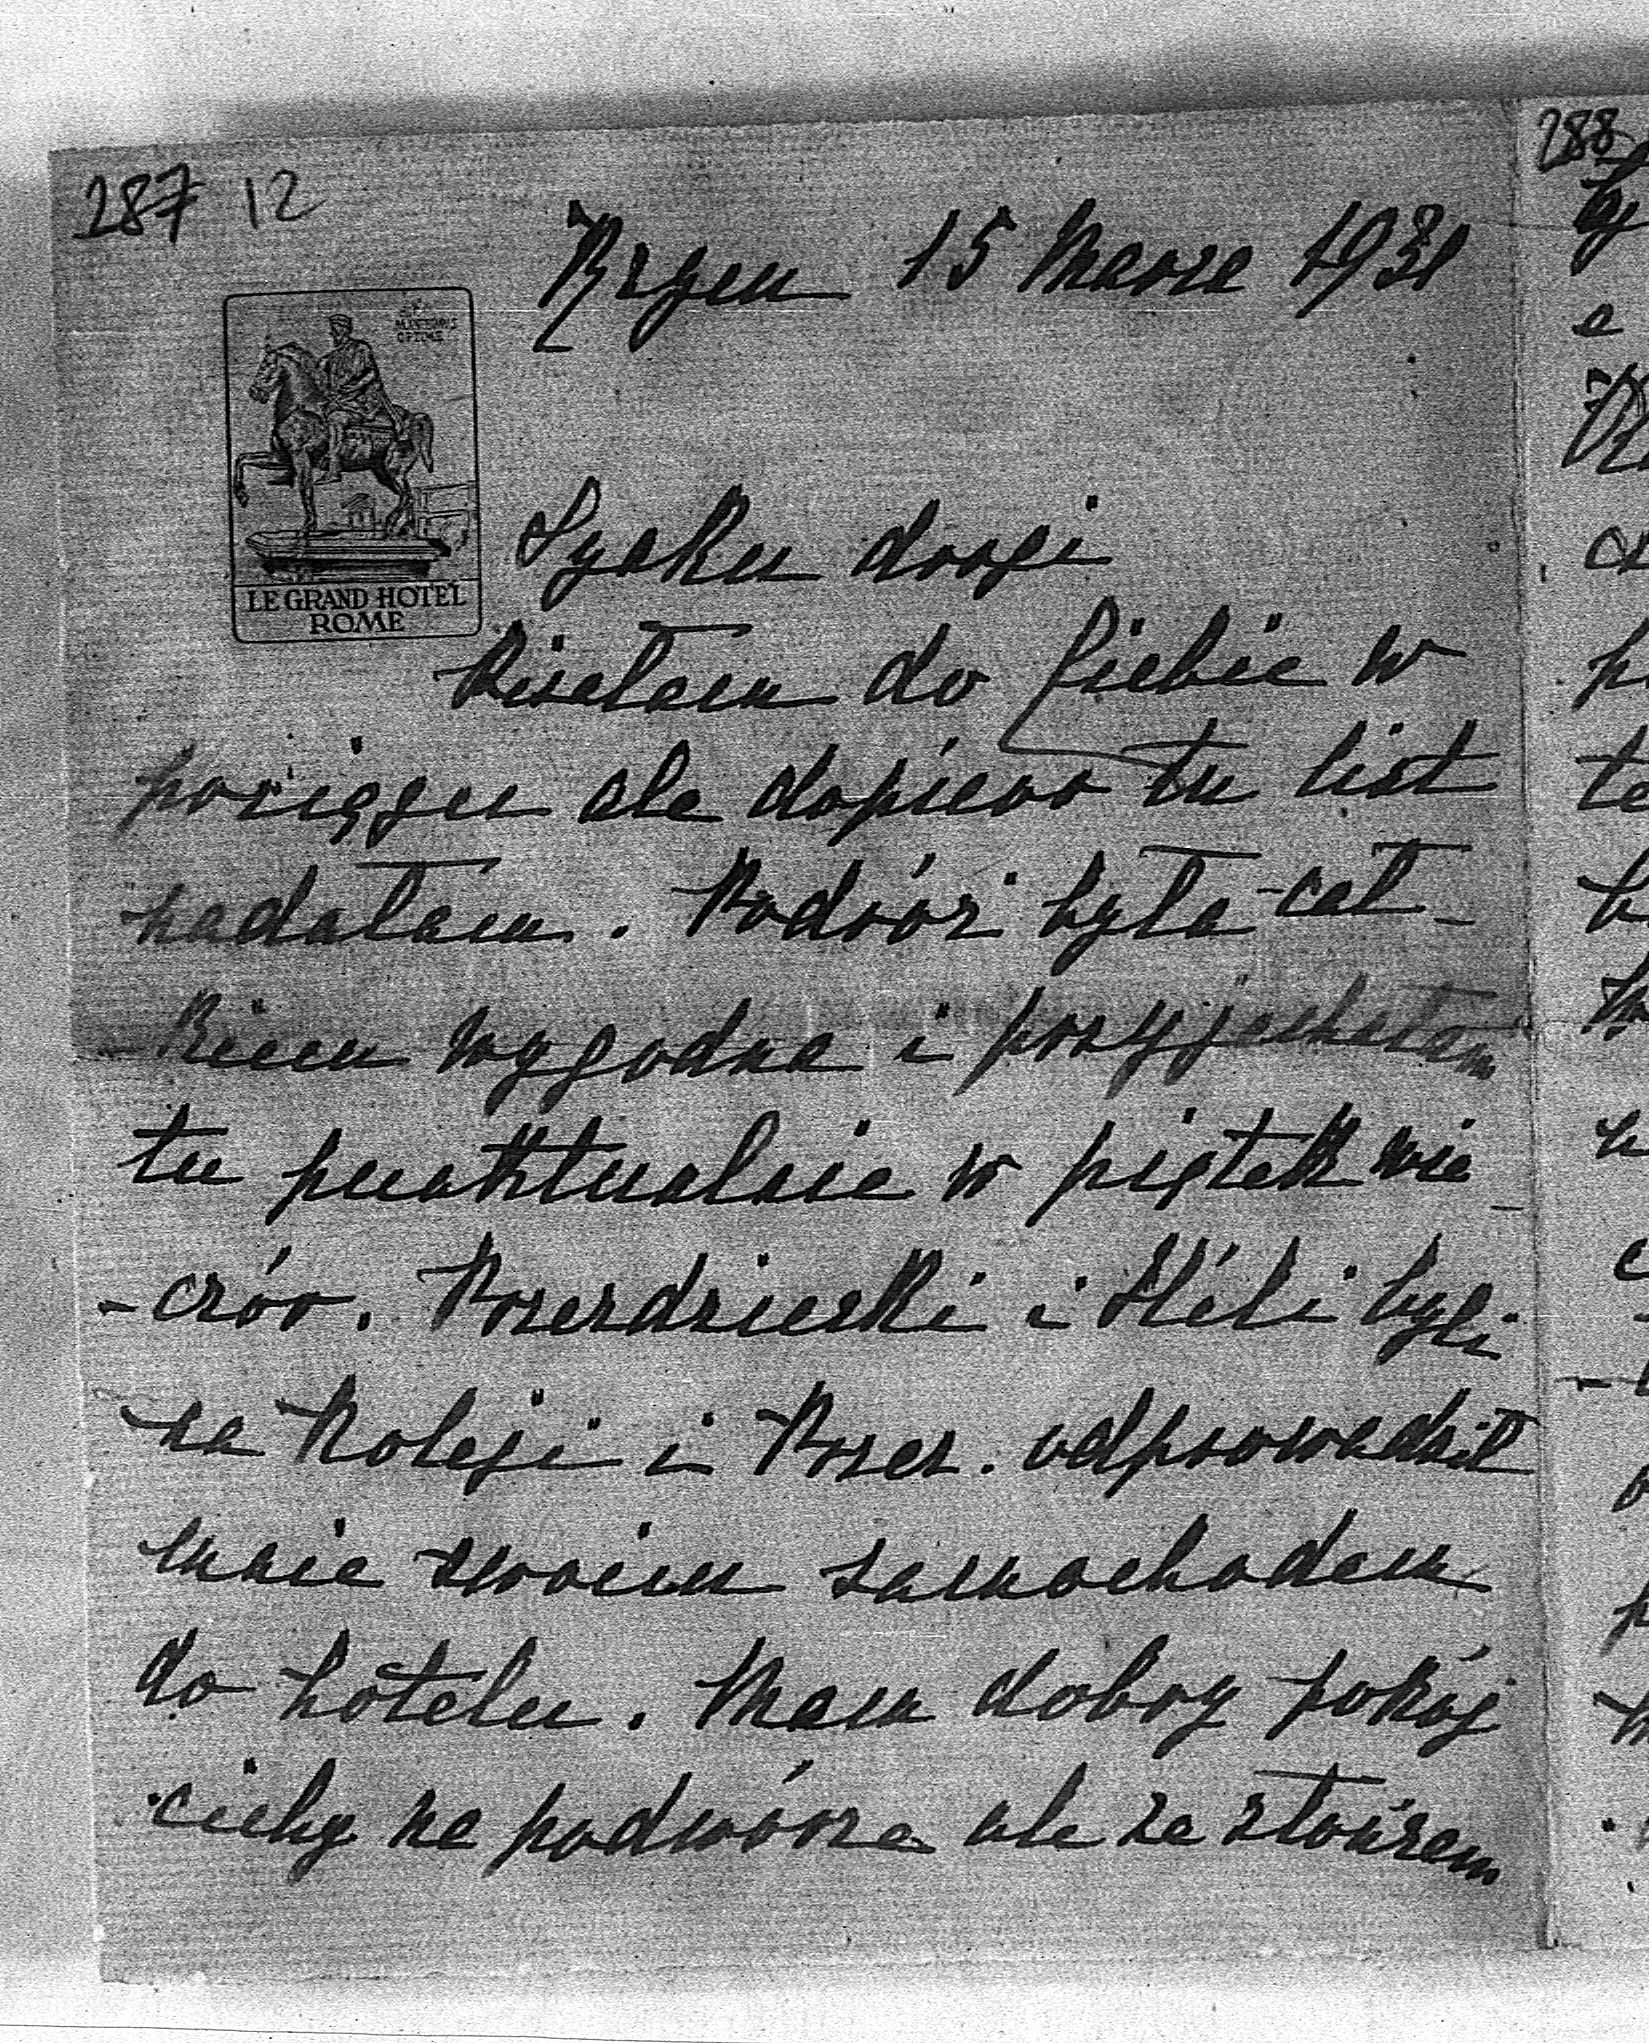 287 12
Rzym 15 Marca 1931
LE GRAND HOTEL
ROME
Synku drogi
Pisałam do Ciebie w
pociągu ale dopiero tu list
nadałam. Podróż była cał-
kiem wygodna i przyjechałam
tu punktualnie w piątek wie-
-czór. Przezdziecki i Héli byli
na koleji i Przez. odprowadził
mnie swoim samochodem
do hotelu. Mam dobry pokój
cichy na podwórze ale ze słońcem
288